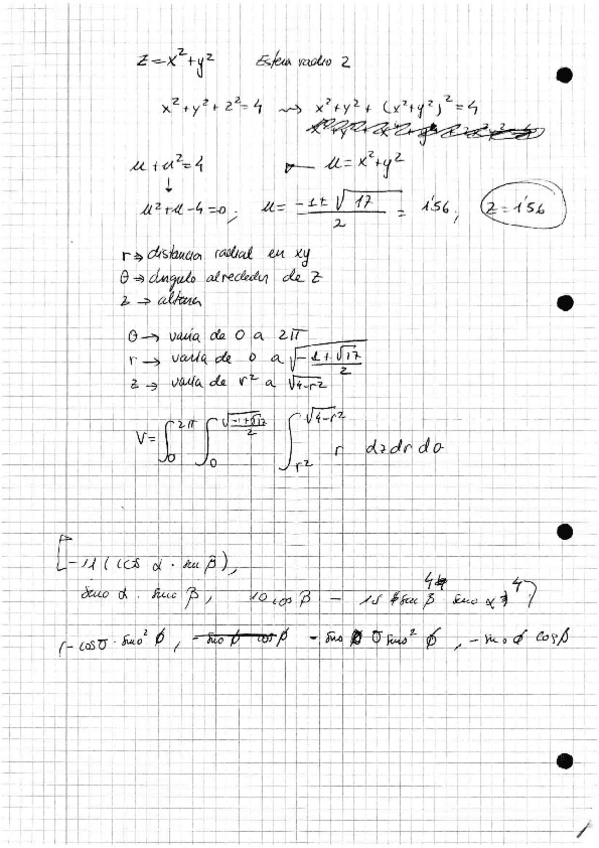 z = x² + y² Esfera radio 2
x² + y² + z² = 4 ⇝ x² + y² + (x² + y²)² = 4
u + u² = 4 ← u = x² + y²
↓
u² + u - 4 = 0; u = (-1 ± √17)/2 = 1'56; z = 1'56
r → distancia radial en xy
θ → ángulo alrededor de z
z → altura
θ → varia de 0 a 2π
r → varia de 0 a √((-1+√17)/2)
z → varia de r² a √(4-r²)
V = ∫₀^2π ∫₀^√((-1+√17)/2) ∫_r²^√(4-r²) r dz dr dθ
[-11 (cos α · sen β),
seno α · seno β, 10 cos β - 15 sen β⁴ seno α⁴)
(-cos σ · seno² ϕ, - seno σ seno² ϕ, - seno ϕ cos β